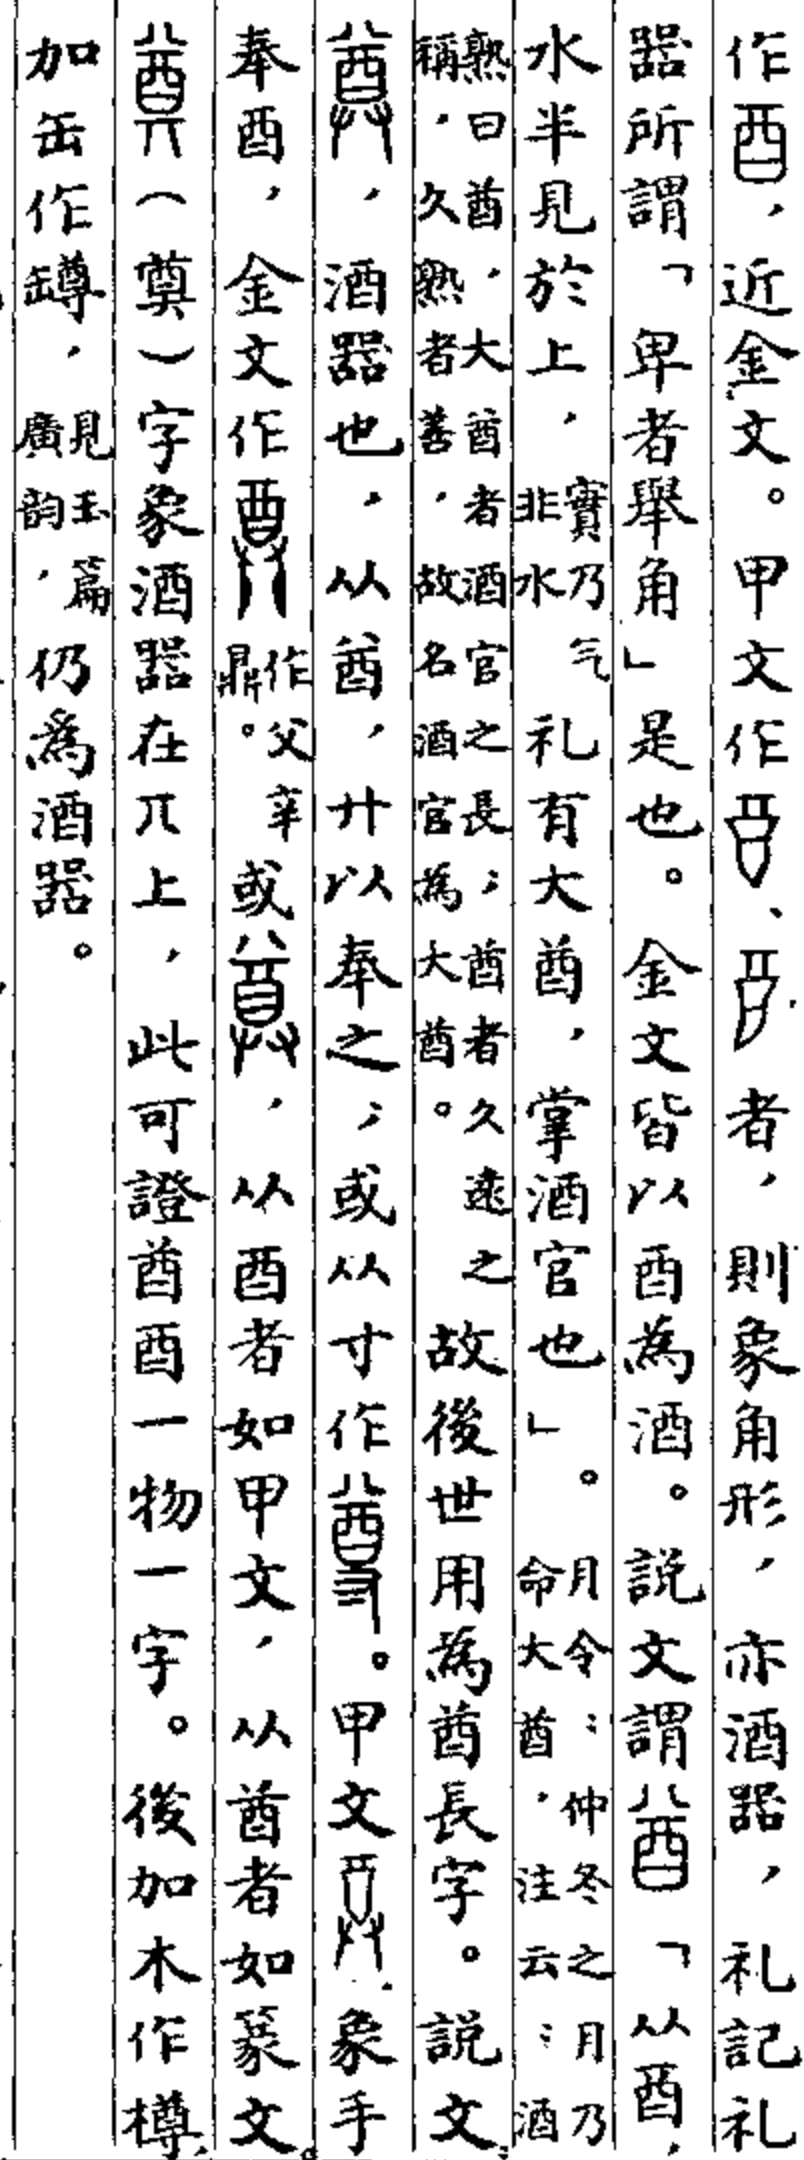 作酉，近金文。甲文作、者，則象角形，亦酒器，礼記礼
器所謂「卑者舉角」是也。金文皆以酉為酒。説文謂酋「从酉，
水半見於上，實乃气非水礼有大酋，掌酒官也」。月令：仲冬之月乃命大酋，注云：酒
熟曰酋，大酋者酒官之長；酋者久遠之稱，久熟者善，故名酒官為大酋。故後世用為酋長字。説文
，酒器也，从酋，廾以奉之；或从寸作尊。甲文象手
奉酉，金文作作父辛鼎。或，从酉者如甲文，从酋者如篆文。
（奠）字象酒器在丌上，此可證酋酉一物一字。後加木作樽，
加缶作罇，見玉篇廣韵，仍為酒器。